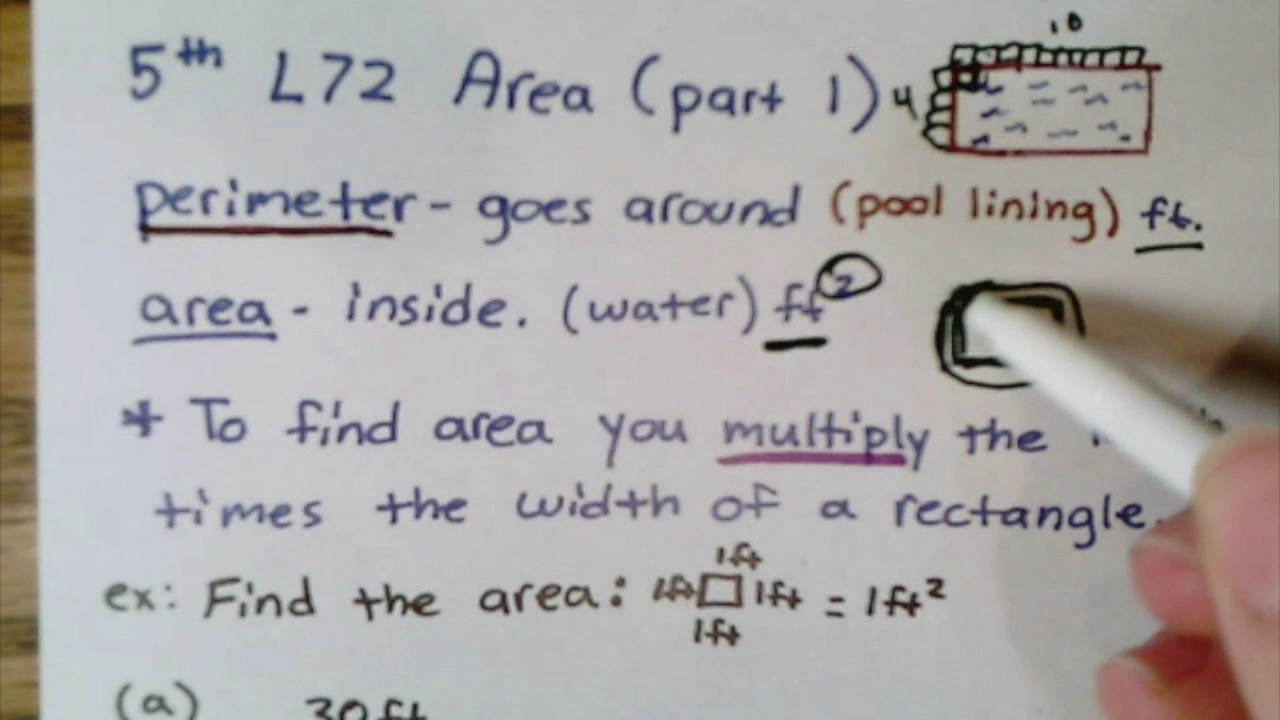 5th L72 Area (part 1)
10
4
perimeter - goes around (pool lining) ft.
area - inside. (water) ft²
* To find area you multiply the
times the width of a rectangle.
1ft
ex: Find the area: 1ft 1ft = 1ft²
1ft
(a) 30ft